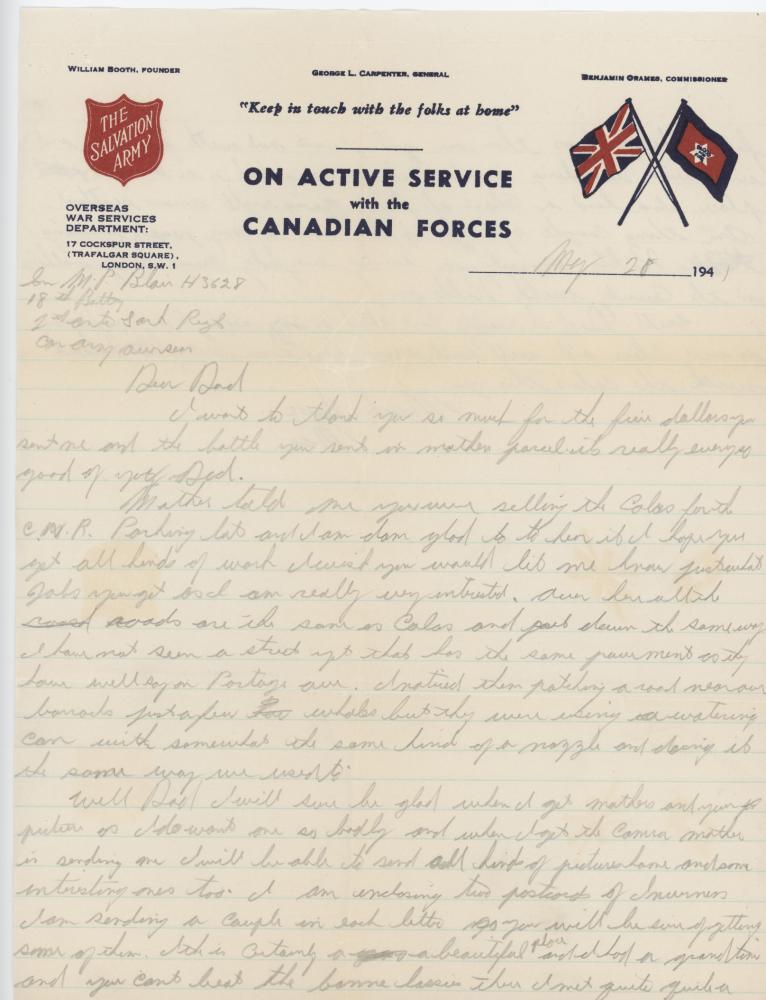 WILLIAM BOOTH, FOUNDER
GEORGE L. CARPENTER, GENERAL
BENJAMIN ORAMES, COMMISSIONER
THE
SALVATION
ARMY
"Keep in touch with the folks at home"
ON ACTIVE SERVICE
with the
CANADIAN FORCES
OVERSEAS
WAR SERVICES
DEPARTMENT:
17 COCKSPUR STREET,
(TRAFALGAR SQUARE),
LONDON, S.W. 1
May 28 1941
Gnr M. P. Blair H3628
18th Batty
2nd Regt
Can army oversea
Dear Dad
I want to thank you so much for the five dollars you
sent me and the bottle you sent in mothers parcel it's really every so
good of you Dad.
Mother told me you were selling the Colas for the
Parking lot and I am dam glad to to hear it I hope you
get all kinds of work I wish you would let me know just what
jobs you get as I am really very intrested. Over here all the
roads are the same as Colas and put down the same way
I have not seen a street yet that has the same pavement as they
have we'll say on Portage ave. I noticed them patching a road near our
barracks just a few wholes but they were using a watering
can with somewhat the same kind of a nozzle and doing it
the same way we used to.
Well Dad I will sure be glad when I get mothers and your
picture as I do want one so badly and when I get the Camera mother
is sending me I will be able to send all kinds of pictures home and some
intristing ones too. I am enclosing two postcards of Inverness
I am sending a couple in each letter so you will be sure of getting
some of them. It is certainly a beautiful place and I had a grand time
and you cant beat the bonnie lassies there I met quite quite a